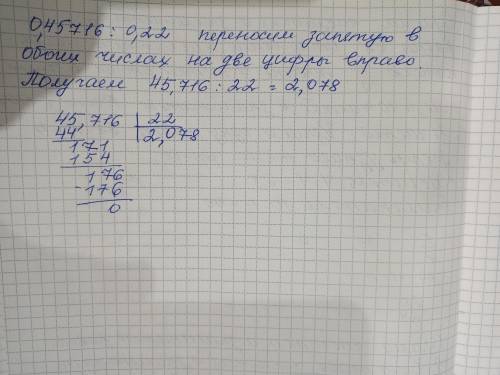 0,45716 : 0,22 переносим запятую в
обоих числах на две цифры вправо.
Получаем 45,716 : 22 = 2,078
45,716 | 22
44 | 2,078
171
154
176
-176
0